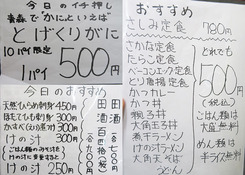 今日のイチ押し
青森で"かに"といえば
とげくりがに
10パイ限定
1パイ
500円
今日のおすすめ
天然ひらめ刺身 450円
ほたてもち刺身 300円
けの汁 300円
けの汁 250円
田酒
おすすめ
さしみ定食 780円
さかな定食
たらこ定食
ベーコンエッグ定食
とり唐揚定食
カレーライス
かつ丼
親子丼
大角玉子丼
煮干ラーメン
けの汁ラーメン
大角天そば
うどん
どれでも
500円
(税込)
ごはん類は
大盛
無料
めん類は
半ライス無料